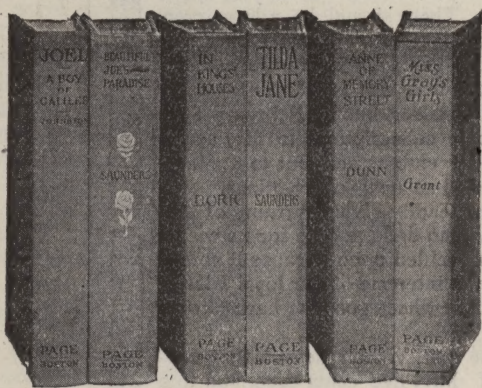 JOEL
A BOY
OF
GALILEE
JOHNSTON
PAGE
BOSTON
BEAUTIFUL
JOE'S
PARADISE
SAUNDERS
PAGE
BOSTON
IN
KINGS'
HOUSES
DORR
PAGE
BOSTON
TILDA
JANE
SAUNDERS
PAGE
BOSTON
ANNE
OF
MEMORY
STREET
DUNN
PAGE
BOSTON
Miss
Gray's
Girls
Grant
PAGE
BOSTON